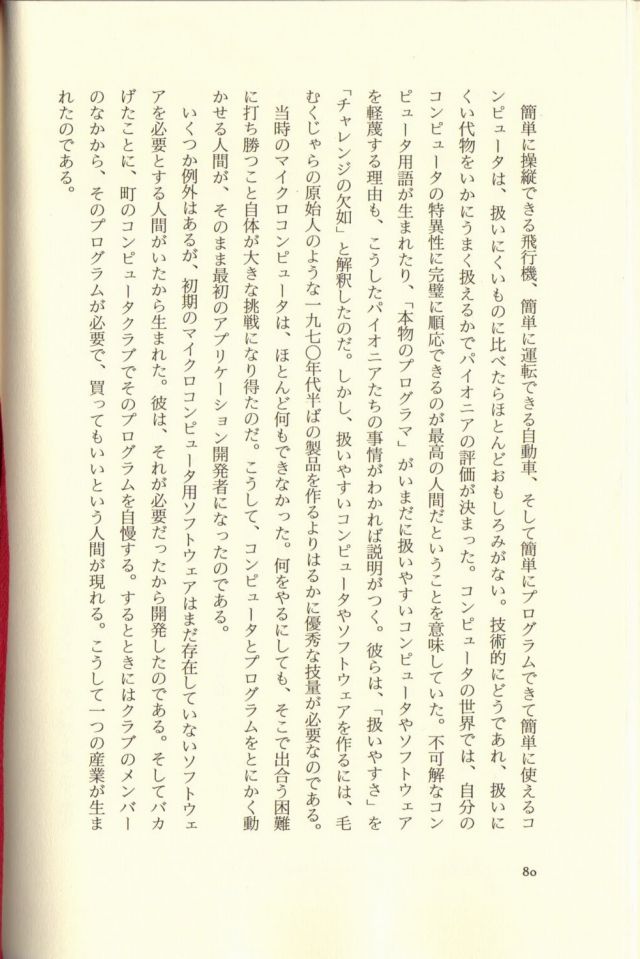 簡単に操縦できる飛行機、簡単に運転できる自動車、そして簡単にプログラムできて簡単に使えるコ
ンピュータは、扱いにくいものに比べたらほとんどおもしろみがない。技術的にどうであれ、扱いに
くい代物をいかにうまく扱えるかでパイオニアの評価が決まった。コンピュータの世界では、自分の
コンピュータの特異性に完璧に順応できるのが最高の人間だということを意味していた。不可解なコン
ピュータ用語が生まれたり、「本物のプログラマ」がいまだに扱いやすいコンピュータやソフトウェア
を軽蔑する理由も、こうしたパイオニアたちの事情がわかれば説明がつく。彼らは、「扱いやすさ」を
「チャレンジの欠如」と解釈したのだ。しかし、扱いやすいコンピュータやソフトウェアを作るには、毛
むくじゃらの原始人のような一九七〇年代半ばの製品を作るよりはるかに優秀な技量が必要なのである。
当時のマイクロコンピュータは、ほとんど何もできなかった。何をやるにしても、そこで出合う困難
に打ち勝つこと自体が大きな挑戦になり得たのだ。こうして、コンピュータとプログラムをとにかく動
かせる人間が、そのまま最初のアプリケーション開発者になったのである。
いくつか例外はあるが、初期のマイクロコンピュータ用ソフトウェアはまだ存在していないソフトウェ
アを必要とする人間がいたから生まれた。彼は、それが必要だったから開発したのである。そしてバカ
げたことに、町のコンピュータクラブでそのプログラムを自慢する。するとときにはクラブのメンバー
のなかから、そのプログラムが必要で、買ってもいいという人間が現れる。こうして一つの産業が生ま
れたのである。
80